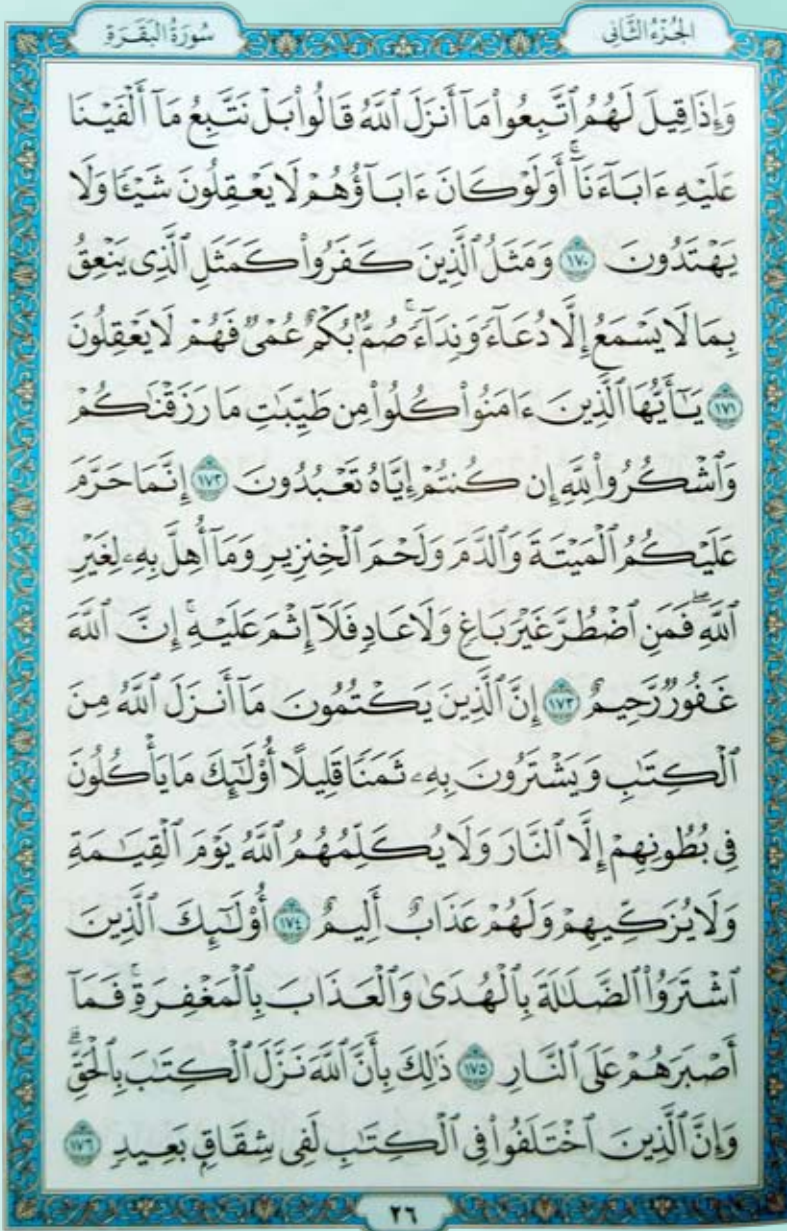 الجزء الثاني
سورة البقرة
وَإِذَا قِيلَ لَهُمُ ٱتَّبِعُوا۟ مَآ أَنزَلَ ٱللَّهُ قَالُوا۟ بَلْ نَتَّبِعُ مَآ أَلْفَيْنَا
عَلَيْهِ ءَابَآءَنَآ ۗ أَوَلَوْ كَانَ ءَابَآؤُهُمْ لَا يَعْقِلُونَ شَيْـًٔا وَلَا
يَهْتَدُونَ ١٧٠ وَمَثَلُ ٱلَّذِينَ كَفَرُوا۟ كَمَثَلِ ٱلَّذِى يَنْعِقُ
بِمَا لَا يَسْمَعُ إِلَّا دُعَآءً وَنِدَآءً ۚ صُمٌّۢ بُكْمٌ عُمْىٌ فَهُمْ لَا يَعْقِلُونَ
١٧١ يَـٰٓأَيُّهَا ٱلَّذِينَ ءَامَنُوا۟ كُلُوا۟ مِن طَيِّبَـٰتِ مَا رَزَقْنَـٰكُمْ
وَٱشْكُرُوا۟ لِلَّهِ إِن كُنتُمْ إِيَّاهُ تَعْبُدُونَ ١٧٢ إِنَّمَا حَرَّمَ
عَلَيْكُمُ ٱلْمَيْتَةَ وَٱلدَّمَ وَلَحْمَ ٱلْخِنزِيرِ وَمَآ أُهِلَّ بِهِۦ لِغَيْرِ
ٱللَّهِ ۖ فَمَنِ ٱضْطُرَّ غَيْرَ بَاغٍ وَلَا عَادٍ فَلَآ إِثْمَ عَلَيْهِ ۚ إِنَّ ٱللَّهَ
غَفُورٌ رَّحِيمٌ ١٧٣ إِنَّ ٱلَّذِينَ يَكْتُمُونَ مَآ أَنزَلَ ٱللَّهُ مِنَ
ٱلْكِتَـٰبِ وَيَشْتَرُونَ بِهِۦ ثَمَنًا قَلِيلًا أُو۟لَـٰٓئِكَ مَا يَأْكُلُونَ
فِى بُطُونِهِمْ إِلَّا ٱلنَّارَ وَلَا يُكَلِّمُهُمُ ٱللَّهُ يَوْمَ ٱلْقِيَـٰمَةِ
وَلَا يُزَكِّيهِمْ وَلَهُمْ عَذَابٌ أَلِيمٌ ١٧٤ أُو۟لَـٰٓئِكَ ٱلَّذِينَ
ٱشْتَرَوُا۟ ٱلضَّلَـٰلَةَ بِٱلْهُدَىٰ وَٱلْعَذَابَ بِٱلْمَغْفِرَةِ ۚ فَمَآ
أَصْبَرَهُمْ عَلَى ٱلنَّارِ ١٧٥ ذَٰلِكَ بِأَنَّ ٱللَّهَ نَزَّلَ ٱلْكِتَـٰبَ بِٱلْحَقِّ ۗ
وَإِنَّ ٱلَّذِينَ ٱخْتَلَفُوا۟ فِى ٱلْكِتَـٰبِ لَفِى شِقَاقٍۭ بَعِيدٍ ١٧٦
٢٦